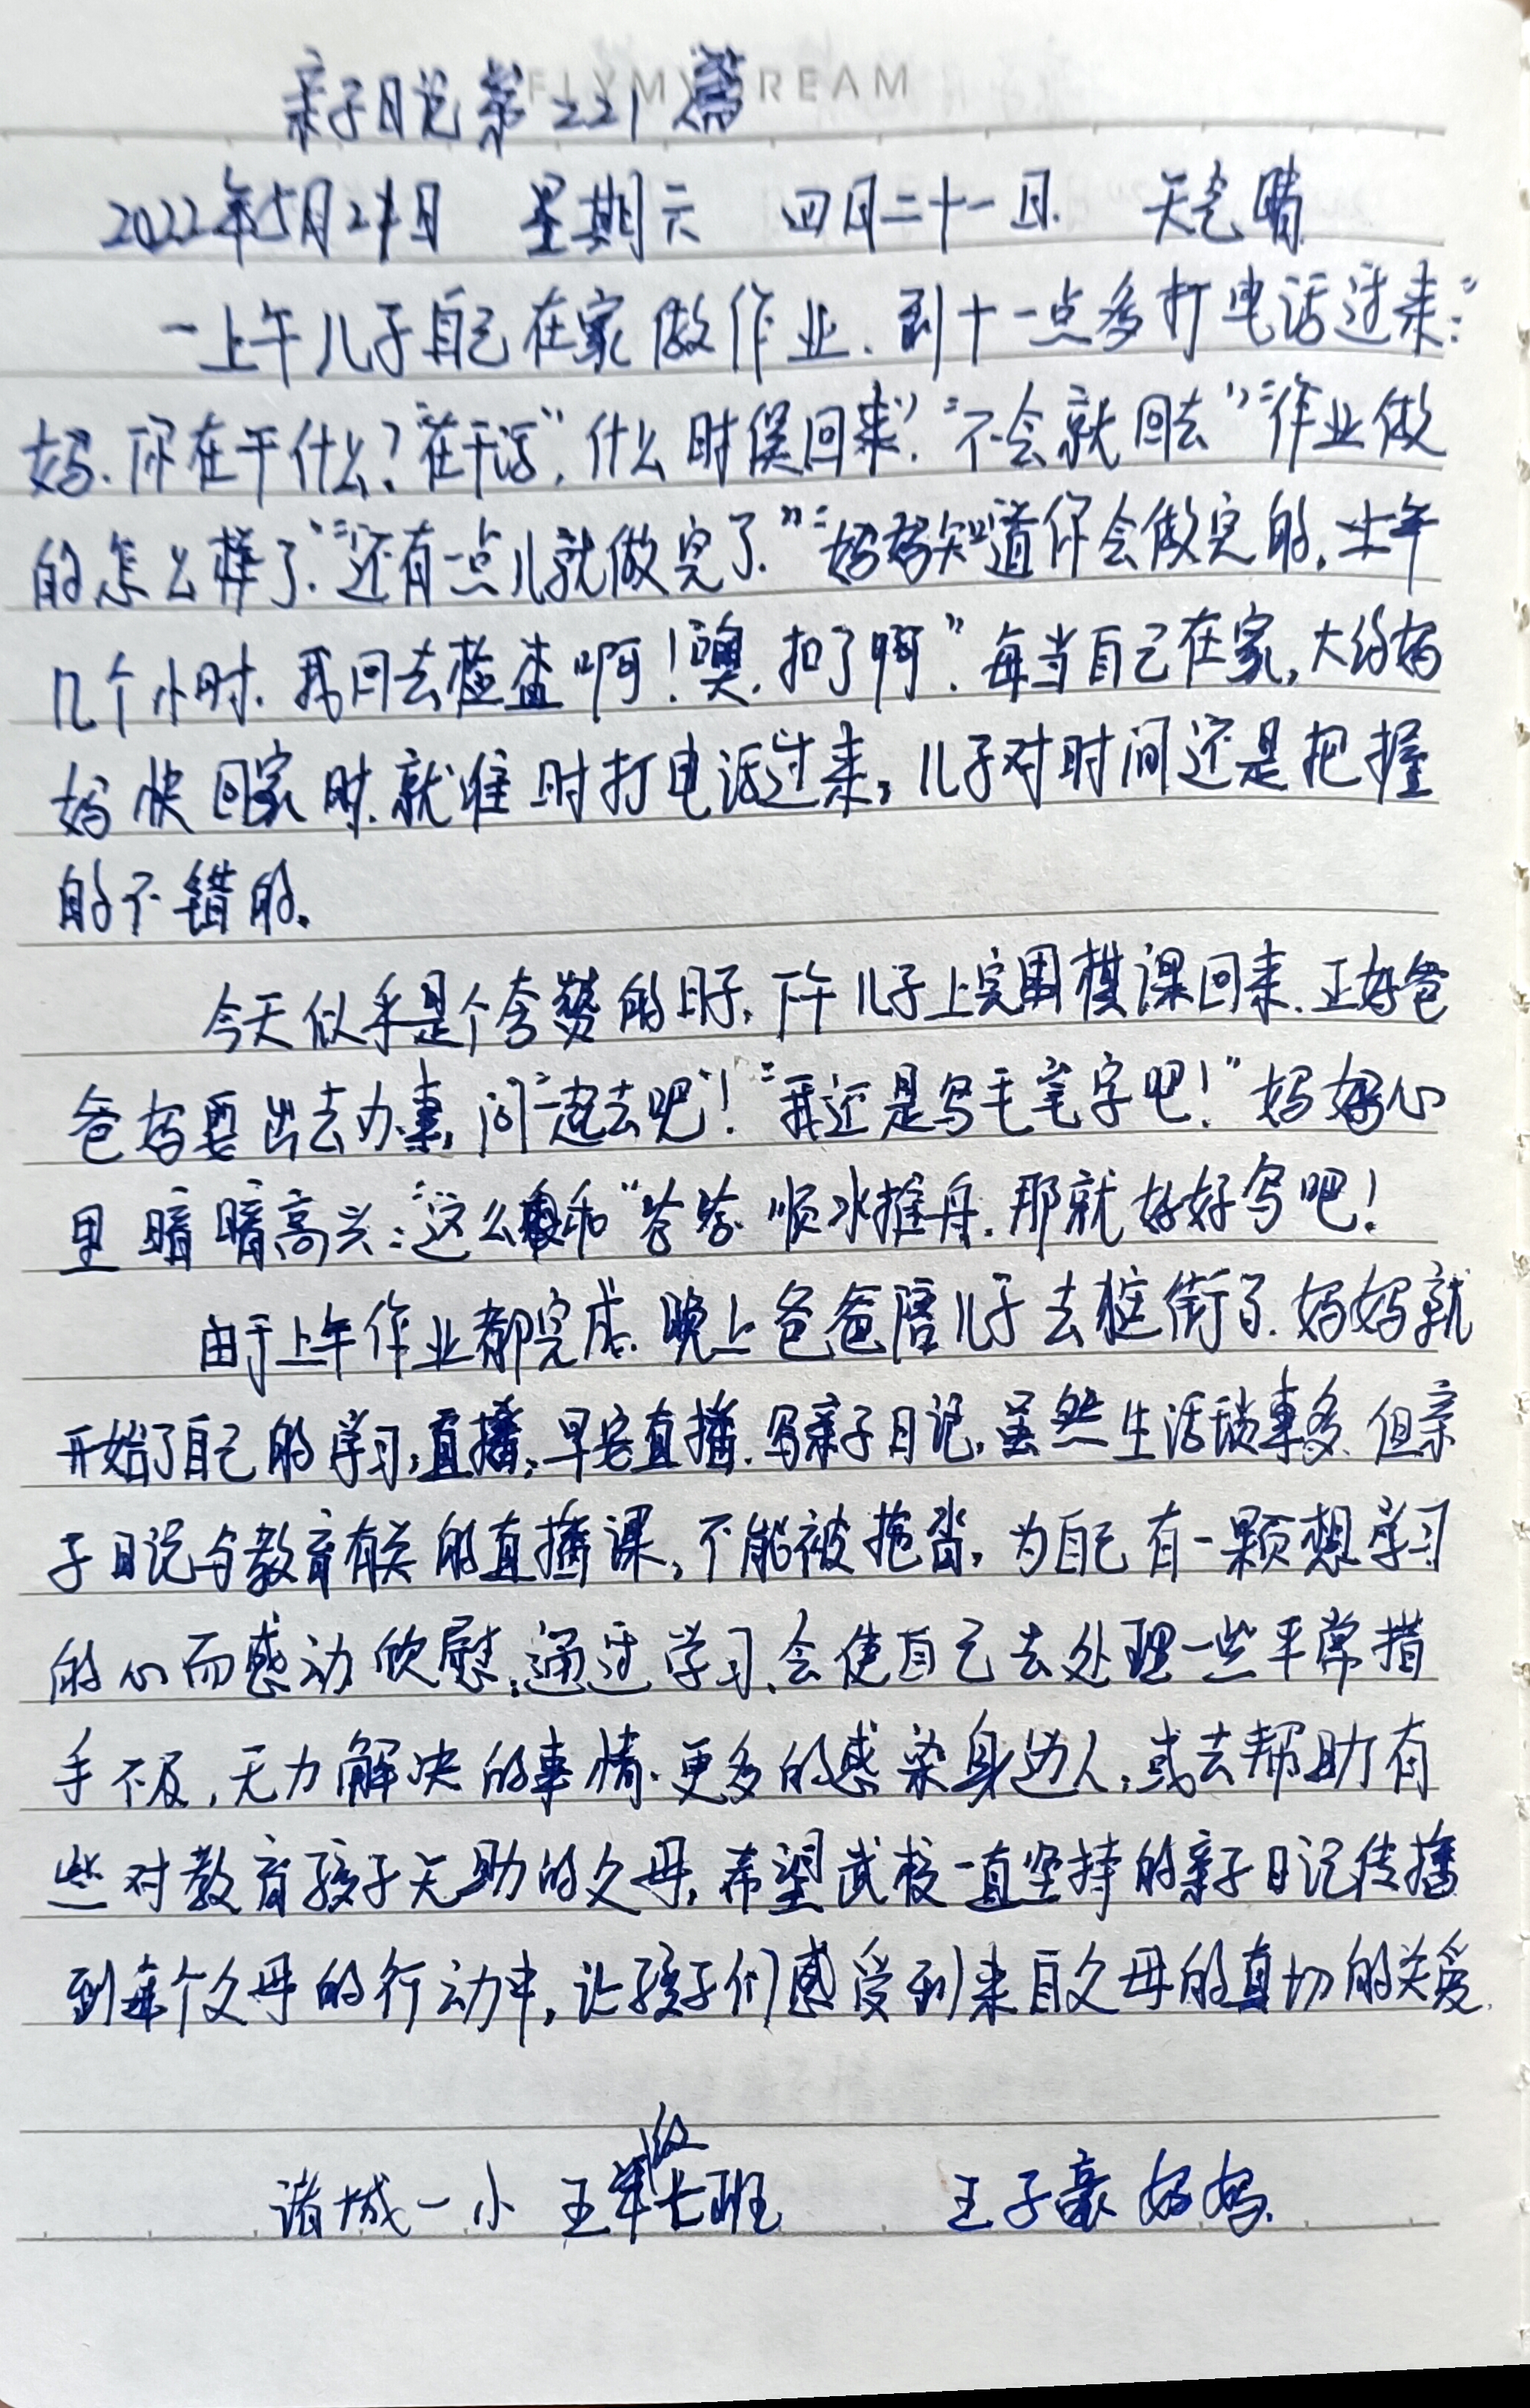 FLYMYDREAM
亲子日记第221篇
2022年5月21日 星期六 四月二十一日. 天气晴
一上午儿子自己在家做作业.到十一点多打电话过来:"
妈.你在干什么?在干活".什么时候回来"."不会就回去""作业做
的怎么样了.""还有一点儿就做完了.""妈妈知道你会做完的.上午
几个小时.我回去检查啊!噢.扣了啊".每当自己在家,大约妈
妈快回家时.就准时打电话过来,儿子对时间还是把握
的不错的.
今天似乎是个夸赞的日子.下午儿子上完围棋课回来.正好爸
爸妈要出去办事,问"一起去吧"!"我还是写毛笔字吧!"妈妈心
里暗暗高兴:"这么"爸爸顺水推舟.那就好好写吧!
由于上午作业都完成.晚上爸爸陪儿子去逛街了.妈妈就
开始了自己的学习,直播,早安直播.写亲子日记,虽然生活琐事多.但亲
子日记与教育有关的直播课,不能被拖沓,为自己有一颗想学习
的心而感动欣慰,通过学习,会使自己去处理一些平常措
手不及,无力解决的事情.更多的感染身边人,或去帮助有
些对教育孩子无助的父母,希望武校一直坚持的亲子日记传播
到每个父母的行动中,让孩子们感受到来自父母的真切的关爱.
诸城一小 五年级七班 王子豪妈妈.